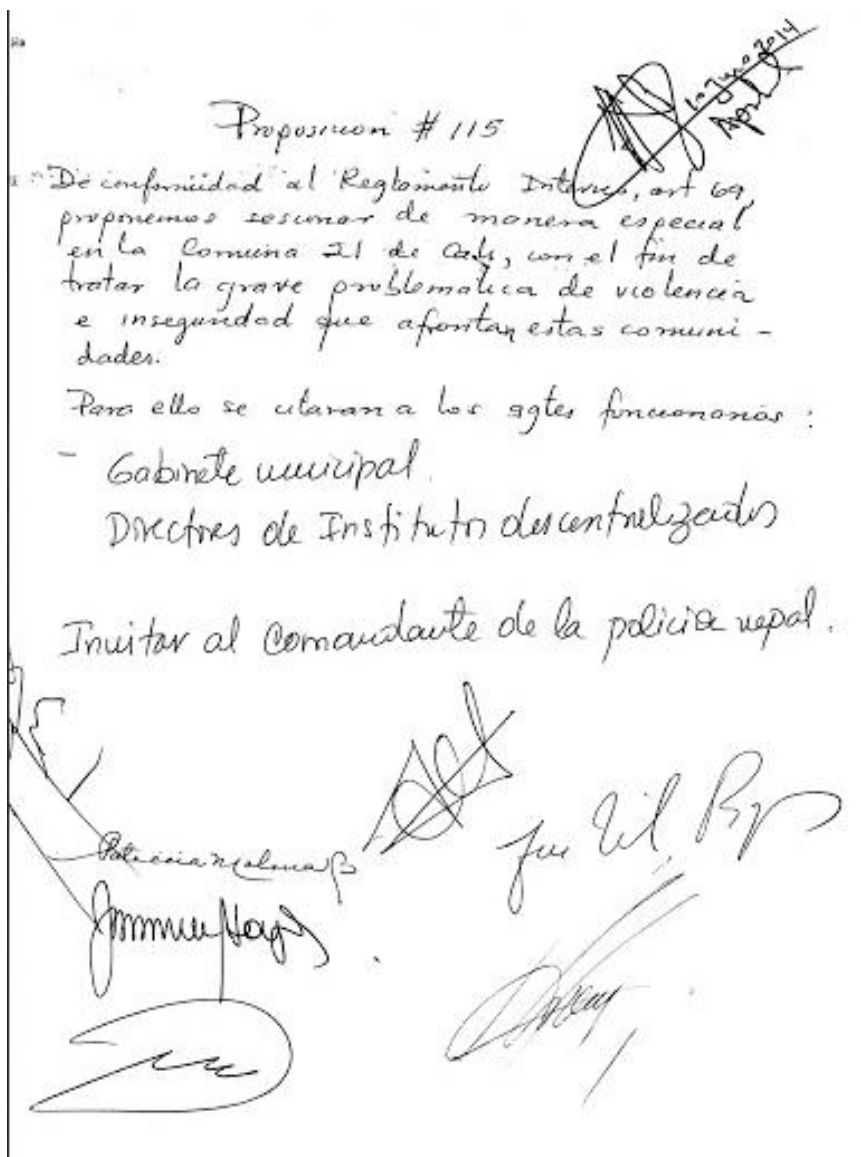 10 Junio 2014
Proposicion # 115
De conformidad al Reglamento Interno, art 69,
proponemos sesionar de manera especial
en la Comuna 21 de Cali, con el fin de
tratar la grave problematica de violencia
e inseguridad que afrontan estas comuni-
dades.
Para ello se citaran a los sgtes funcionarios :
- Gabinete municipal.
Directores de Institutos descentralizados
Invitar al Comandante de la policia mpal.
Patricia Molina B